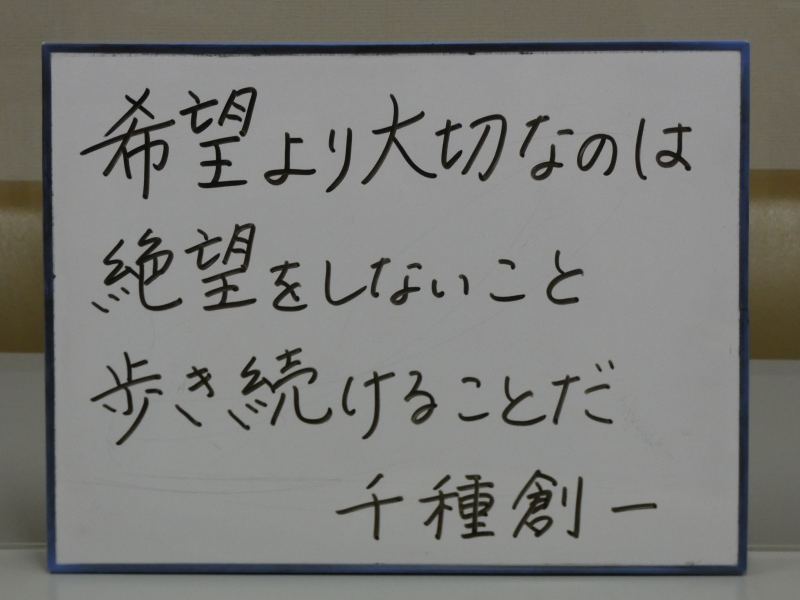 希望より大切なのは
絶望をしないこと
歩き続けることだ
千種創一